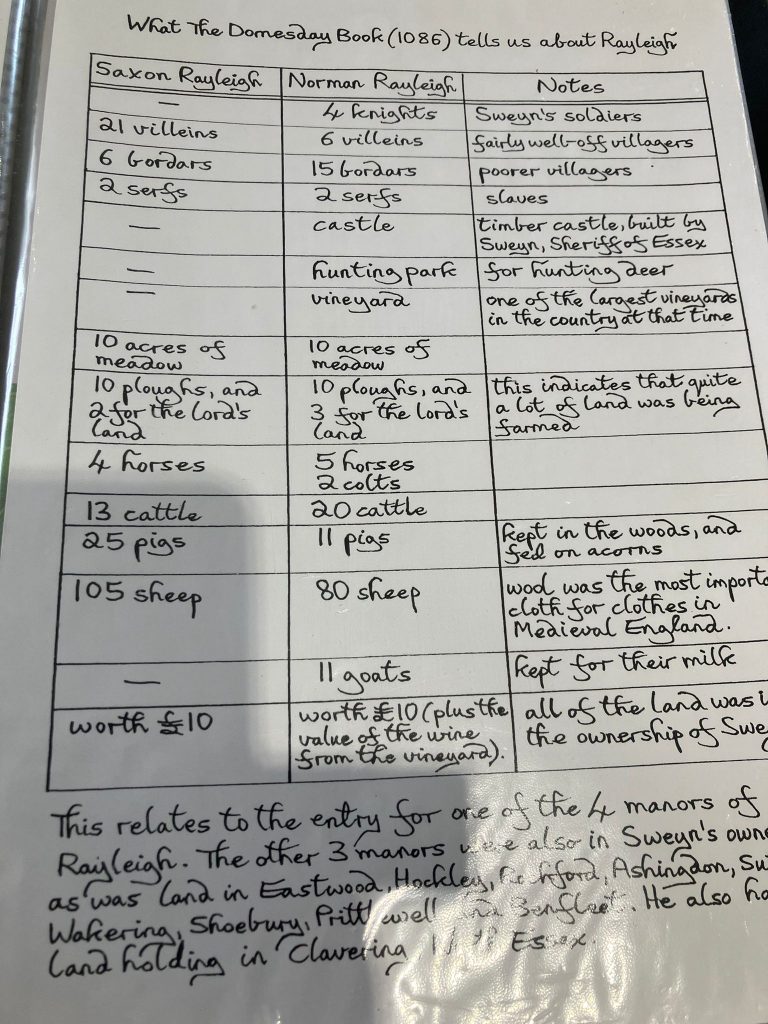 What The Domesday Book (1086) tells us about Rayleigh
Saxon Rayleigh Norman Rayleigh Notes
— 4 knights Sweyn's soldiers
21 villeins 6 villeins fairly well-off villagers
6 bordars 15 bordars poorer villagers
2 serfs 2 serfs slaves
— castle timber castle, built by
Sweyn, Sheriff of Essex
— hunting park for hunting deer
— vineyard one of the largest vineyards
in the country at that time
10 acres of 10 acres of
meadow meadow
10 ploughs, and 10 ploughs, and this indicates that quite
2 for the lord's 3 for the lord's a lot of land was being
land land farmed
4 horses 5 horses
2 colts
13 cattle 20 cattle
25 pigs 11 pigs kept in the woods, and
fed on acorns
105 sheep 80 sheep wool was the most importa
cloth for clothes in
Medieval England.
— 11 goats kept for their milk
worth £10 worth £10 (plus the all of the land was i
value of the wine the ownership of Swe
from the vineyard).
This relates to the entry for one of the 4 manors of
Rayleigh. The other 3 manors were also in Sweyn's owne
as was land in Eastwood, Hockley, Ashingdon, Su
Wakering, Shoebury, Prittlewell and Benfleet. He also ha
land holding in Clavering Essex.